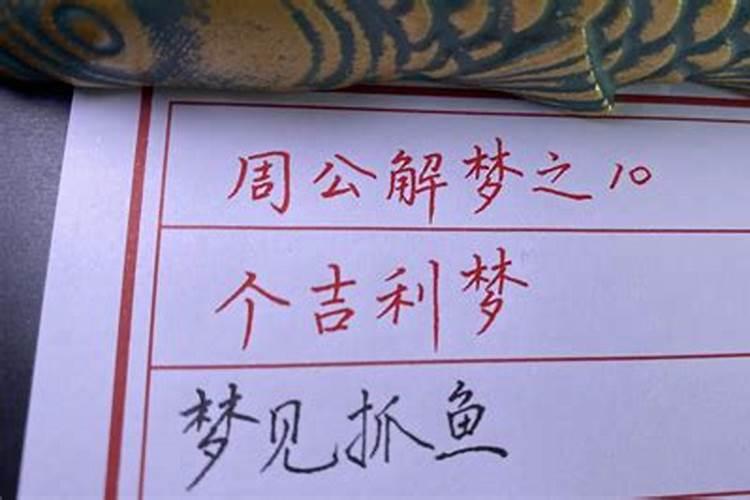 周公解梦之10
个吉利梦
梦见抓鱼